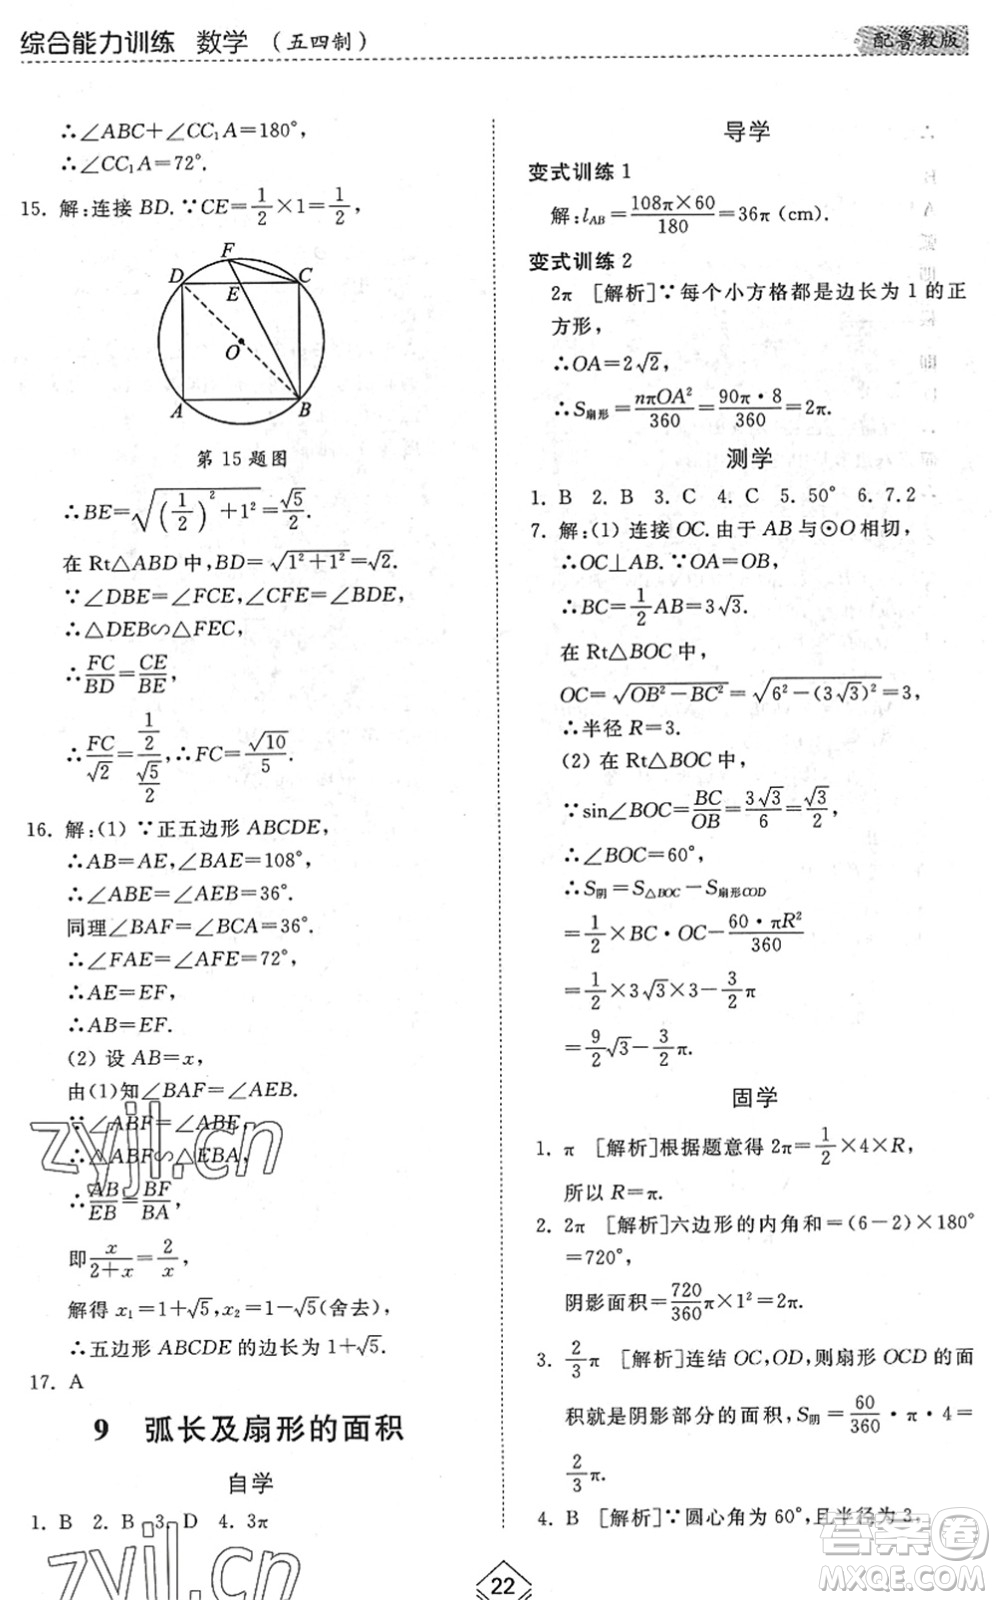 综合能力训练 数学 (五四制)
配鲁教版
∴∠ABC+∠CC₁A=180°,
∴∠CC₁A=72°.
15. 解:连接 BD.∵CE=1/2×1=1/2,
F
D
E
C
O
A
B
第 15 题图
∴BE=√((1/2)²+1²)=√5/2.
在 Rt△ABD 中,BD=√(1²+1²)=√2.
∵∠DBE=∠FCE,∠CFE=∠BDE,
∴△DEB∽△FEC,
∴FC/BD=CE/BE,
∴FC/√2=(1/2)/(√5/2),∴FC=√10/5.
16. 解:(1) ∵正五边形 ABCDE,
∴AB=AE,∠BAE=108°,
∴∠ABE=∠AEB=36°.
同理∠BAF=∠BCA=36°.
∴∠FAE=∠AFE=72°,
∴AE=EF,
∴AB=EF.
(2) 设 AB=x,
由(1)知∠BAF=∠AEB.
∵∠ABF=∠ABE,
∴△ABF∽△EBA,
∴AB/EB=BF/BA,
即x/(2+x)=2/x,
解得 x₁=1+√5,x₂=1-√5(舍去),
∴五边形 ABCDE 的边长为 1+√5.
17. A
9 弧长及扇形的面积
自学
1. B 2. B 3. D 4. 3π
导学
变式训练 1
解:l_AB=108π×60/180=36π(cm).
变式训练 2
2π [解析]∵每个小方格都是边长为 1 的正
方形,
∴OA=2√2,
∴S扇形=nπOA²/360=90π·8/360=2π.
测学
1. B 2. B 3. C 4. C 5. 50° 6. 7.2
7. 解:(1) 连接 OC.由于 AB 与⊙O 相切,
∴OC⊥AB.∵OA=OB,
∴BC=1/2AB=3√3.
在 Rt△BOC 中,
OC=√(OB²-BC²)=√(6²-(3√3)²)=3,
∴半径 R=3.
(2) 在 Rt△BOC 中,
∵sin∠BOC=BC/OB=3√3/6=√3/2,
∴∠BOC=60°,
∴S阴=S△BOC-S扇形COD
=1/2×BC·OC-60·πR²/360
=1/2×3√3×3-3/2π
=9/2√3-3/2π.
固学
1. π [解析]根据题意得 2π=1/2×4×R,
所以 R=π.
2. 2π [解析]六边形的内角和=(6-2)×180°
=720°,
阴影面积=720/360π×1²=2π.
3. 2/3π [解析]连结 OC,OD,则扇形 OCD 的面
积就是阴影部分的面积,S阴=60/360·π·4=
2/3π.
4. B [解析]∵圆心角为 60°,且半径为 3,
22
zyjl.cn
zyjl.cn
答案圈
MXQE.COM